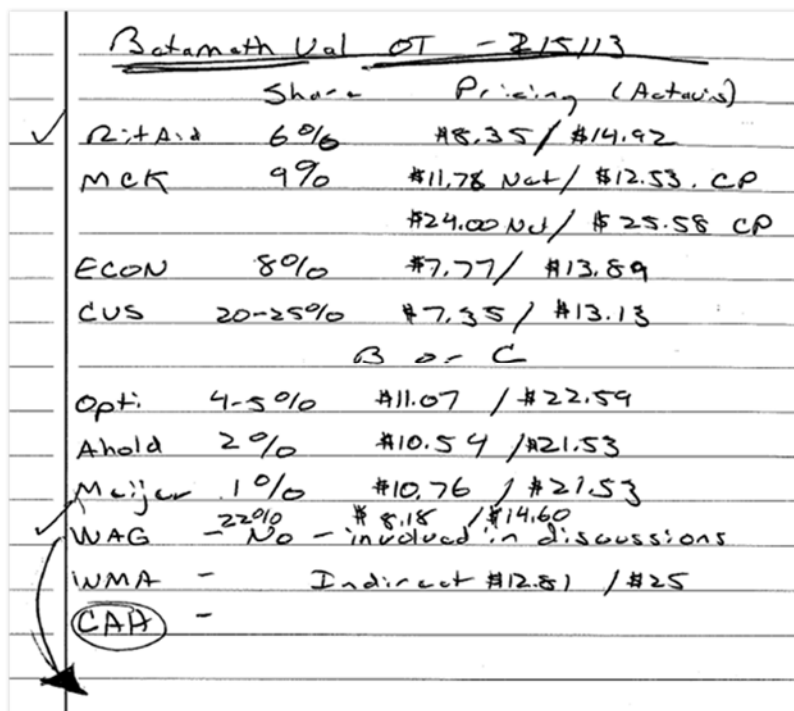 Batamath Val OT - 2/5/13
Share Pricing (Actavis)
✓ Rit Aid 6% $8.35 / $14.92
MCK 9% $11.78 Net / $12.53. CP
$24.00 Net / $25.58 CP
ECON 8% $7.77 / $13.89
CVS 20-25% $7.35 / $13.13
B or C
Opti 4-5% $11.07 / $22.59
Ahold 2% $10.54 / $21.53
Meijer 1% $10.76 / $21.53
22% $8.18 / $14.60
✓ WAG - No - involved in discussions
WMA - Indirect $12.81 / $25
CAH -